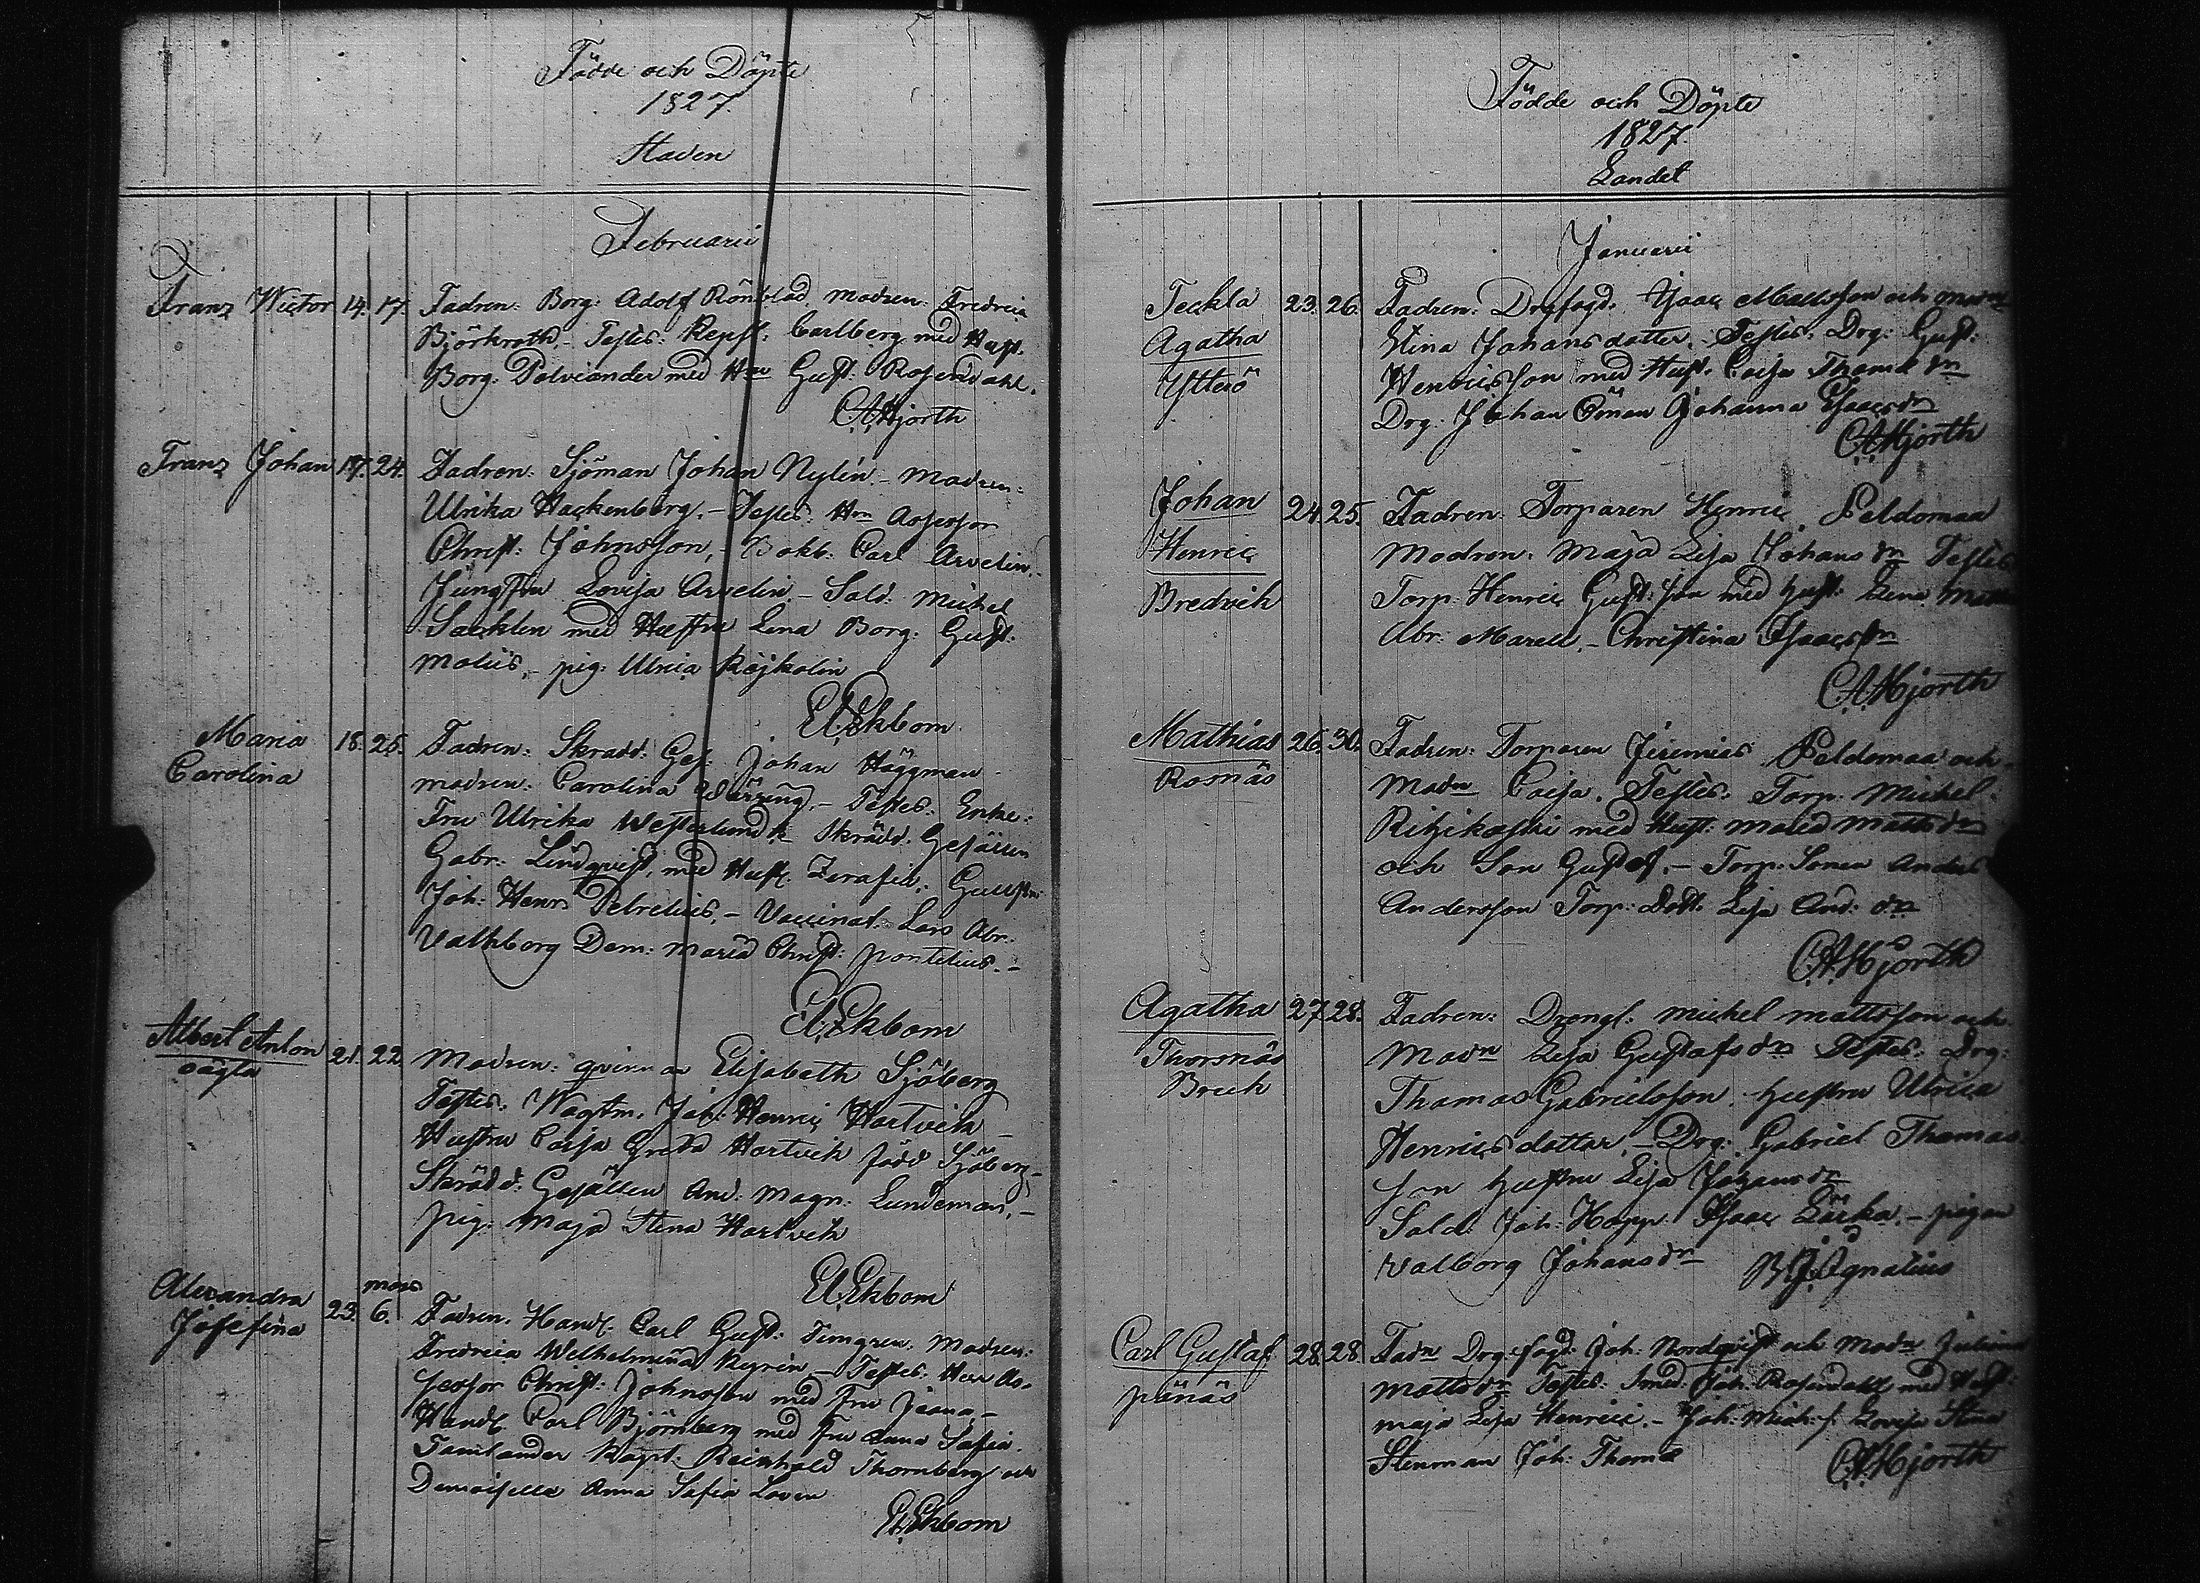 Födde och Döpte
1827.
Staden
Februarii
Franz Victor 14. 17. Fadren: Borg: Adolf Rönblad, Modren: Fredrica
Björkroth. - Testes: Repsl: Carlberg med Hust.
Borg: Polviander med Hru Gust: Rosendahl.
CAHjorth
Franz Johan 17. 24. Fadren: Sjöman Johan Nylin. - Modren:
Ulrika Hackenberg. - Testes: Hrn Assessor
Christ: Johnsson, - Bokb: Carl Arvelin. -
Jungfru Lovisa Arvelin. - Sold: Michel
Sacklen med Hustru Lena Borg: Gust:
Moliis, - pig: Ulrica Röjkolin
EAEkbom
Maria 18. 25. Fadren: Skradd: Ges: Johan Häggman
Carolina modren: Carolina Värring. - Testes: Enke:
Fru Ulrika Westerlund, - Skrädd: Gesällen
Gabr: Lindqvist, med Hust: Zerafia,
Joh: Henr: - Vaccinat: Lars Abr:
Valkborg Dem: Maria Christ: Pontelius. -
EAEkbom
Albert Anton 21. 22. Modren: qvinnan Elisabeth Sjöberg
oägta Testes: Wagtm. Joh: Henric Hartvik -
Hustru Caisa Greta Hartvik född Sjöberg, -
Skrädd: Gesällen And: Magn: Lundeman, -
pig: Maja Stena Hartvik
EAEkbom
Alexandra mars
Josefina 23. 6. Fadren. Handl: Carl Gust: Timgren. Modren:
Fredrica Welhelmina Regrén - Testes: Herr As-
sessor Christ: Johnsson med Fru Joana, -
Handl. Carl Björnberg med Fru Anna Safia.
Tamlander Kapt: Reinhold Thornberg och
Demoisella Anna Safia Loven
EAEkbom
Födde och Döpte
1827.
Landet
Januarii
Teckla 23. 26. Fadren: Drgfogd. Isaac Mattsson och Modn
Agatha Stina Johans dotter. - Testes: Drg: Gust:
Ytterö Henricsson med Hust. Caisa Thomæ dn
Drg. Johan Öman Johanna Isaacsdn
CAHjorth
Johan 24. 25. Fadren: Torparen Henric Peldomaa
Henric Modren: Maja Lisa Johans dn Testes
Bredvik Torp: Henric Gust: son med hust: Lena
Abr: Marell, - Christina Isaacsdn
CAHjorth
Mathias 26. 30. Fadren: Torparen Jeremias Peldomaa och
Rosnäs Modn Caisa. Testes: Torp: Michel
Ritzikoski med Hust: Maria Mattsdn
och Son Gustaf. - Torp: Sonen Anders
Andersson Torp: Dott: Lisa And: dn
CAHjorth
Agatha 27. 28. Fadren: Drengl: Michel Mattsson och
Thorsnäs Modn Lisa Gustafsdn Testes: Drg:
Bruk Thomas Gabrielsson. hustru Ulrica
Henricsdotter, - Drg: Gabriel Thomas
son hustru Lisa Johansdn
Sold: Joh: Hopp: Isaac Lärka. - pigan
Valborg Johansdn BJIgnatius
Carl Gustaf 28. 28. Fadn Drg:fogd: Joh: Nordqvist och Modn Juliana
pänäs Mattsdn Testes: Smed: Joh: Rosendahl med Hust:
Maja Lisa Henrici. - Joh: Mich: s. Lovisa Stina
Stenman Joh: Thomæ CAHjorth